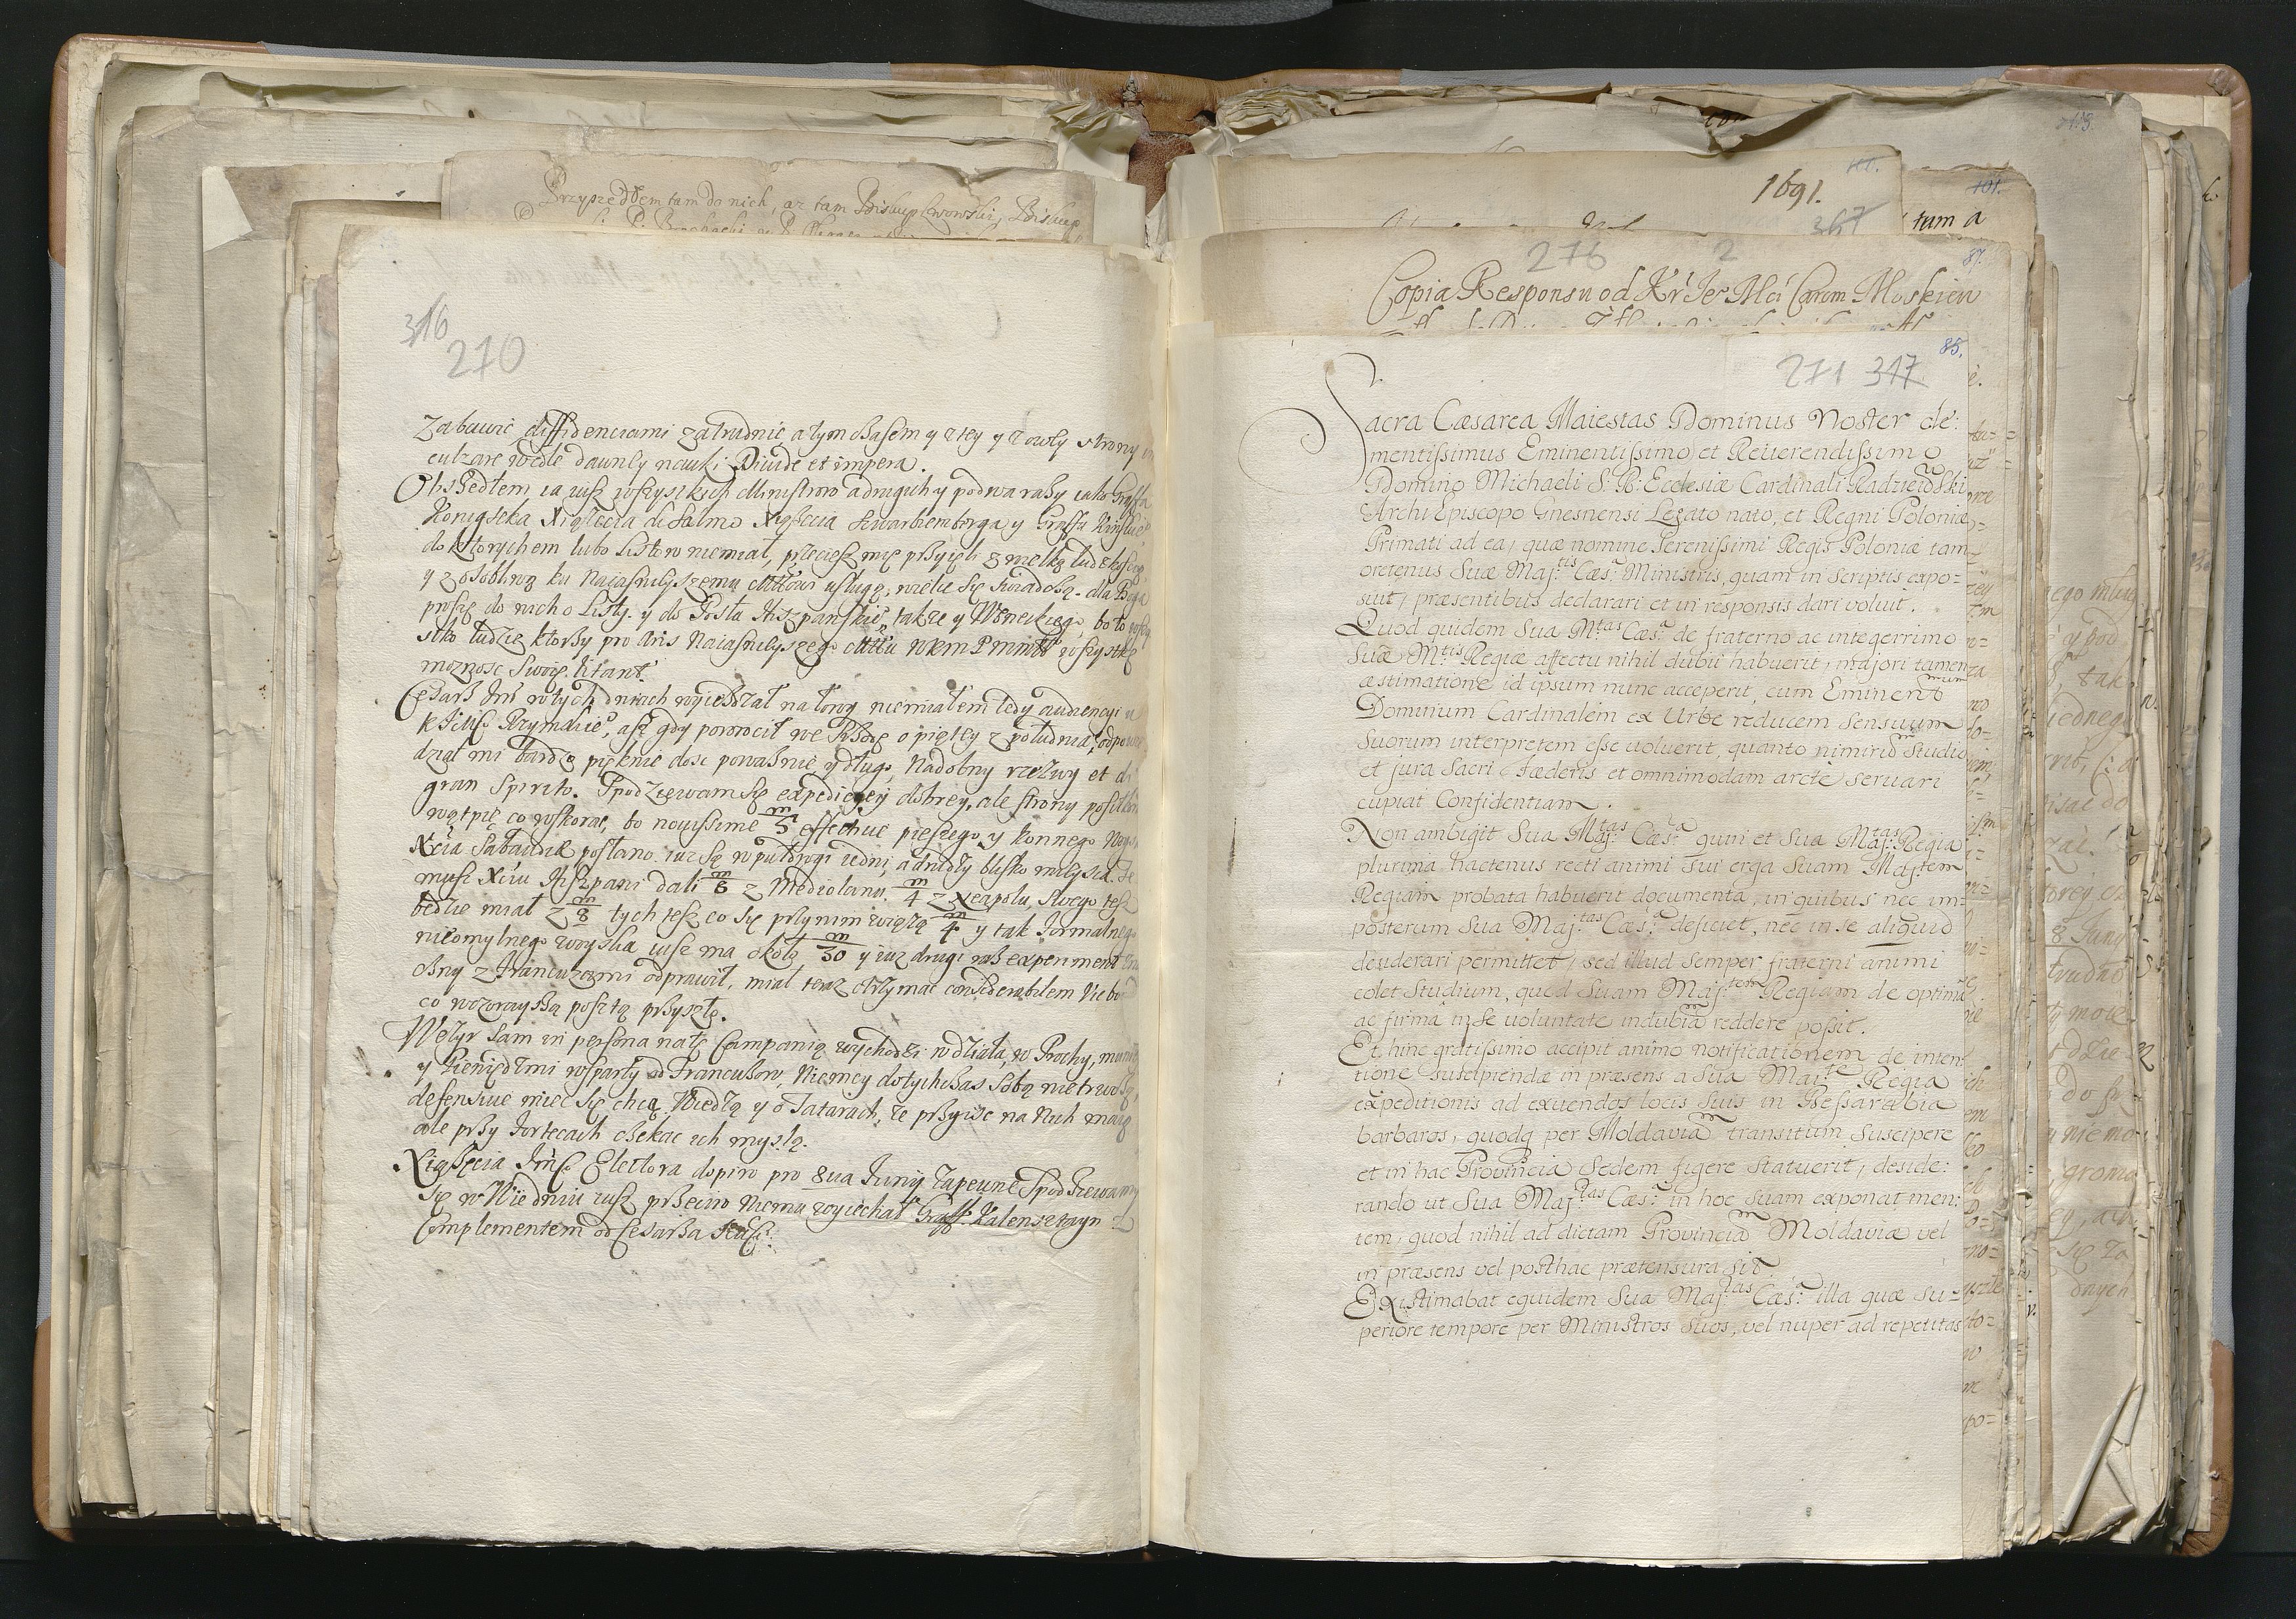 Przyszedłem tam do nich, az tam Biskup Lwowski, Biskup
316
270
zabawić diffidenciami zatrudnić a tym czasem y z tey y z owey strony
culzare wedle dawney nauki Diuide et impera.
Obszedłem ia iusz wszystkich Ministrow a drugich y podwa razy iako Graffa
Konigseka Xiążęcia di Salmo Xiążęcia Szwarbemberga y Graffa Kinskie°
do ktorychem lubo Listow niemiał, przeciesz mię przyięli z wielką ludzkością
y z osobliwą ku Naiasnieyszemu usługę, wielce się swiadczą. dla Boga
proszę do nich o Listy. y do Posła Hiszpanskie°, także y Weneckiego, bo to
ludzie ktorzy pro Aris Naiasnieyszego wszystkę
moznosc swoię litant.
Cesarz Imć w tych dniach wyieżdzał na łowy niemiałem tedy audiencyi u
Krzymskie°, asz gdy powrocił we Srzodę o piątey z południa, odpowie
dział mi bardzo pięknie dosc powaznie y długo, Nadobny rzezwy et di
gran spirito. Spodziewam się expedicyey dobrey, ale strony posiłkow
wątpię co wskorac, bo nouissime m/5 effectiue pieszego y konnego Woyska
Xcia Sabaudie posłano. iusz są w pułdrogi iedni, a drudzy blisko mieysca. Te
musz Xciu Hiszpani dali m/8 z Mediolanu. m/4 z Neapolu, Swego tesz
będzie miał z m/8 tych tesz co się przy nim wiążą m/4 y tak formalnego
nieomylnego woyska iusz ma około m/30 y iuz drugi raz experiment
czny z Francuzami odprawił, miał teraz otrzymac considerabilem
co wczorayszą posztą przyszło.
Wezyr sam in persona na tę Campanią wychodzi w działa, w Prochy,
y Pieniędzmi wsparty od Francuzow, Niemcy dotychczas sobą nietrwożą,
defensiue miec się chcą. Wiedzą y o Tatarach, że przyisc na Nich maią
ale przy fortecach czekac ich myslą.
Xiążęcia Imć Elektora dopiro pro 8ua Iunij zapewne Spodziewamy
się w Wiedniu iusz przeciwko Niemu wyiechał Graff Walensztayn z
Complementem od Cesarza
1691.
367
tum a
276 2
87.
Copia Responsu od Kr Je° Mci Carom Moskiew
85.
271 347
Sacra Cæsarea Maiestas Dominus Noster cle:
mentissimus Eminentissimo et Reuerendissimo
Domino Michaeli S: R: Ecclesiæ Cardinali Radzieiowski
Archi Episcopo Gnesnensi Legato nato, et Regni Poloniæ
Primati ad ea, quæ nomine Serenissimi Regis Poloniæ tam
oretenus Suæ Maj:tis Cæs: Ministris, quam in Scriptis expo=
suit, præsentibus declarari et in responsis dari voluit.
Quod quidem Sua M:tas Cæs:a de fraterno ac integerrimo
Suæ M:tis Regiæ affectu nihil dubii habuerit, majori tamen
æstimatione id ipsum nunc acceperit, cum Eminent:mum
Dominum Cardinalem ex Urbe reducem sensuum
suorum interpretem esse uoluerit, quanto nimirũ Studio
et jura Sacri Fœderis et omnimodam arctè seruari
cupiat Confidentiam.
Non ambigit Sua Maj:tas Cæs:a quin et Sua Maj:tas Regia
plurima hactenus recti animi sui erga Suam Maj:tem
Regiam probata habuerit documenta, in quibus nec im=
posterum Sua Maj:tas Cæs:a deficiet, nec in se aliquid
desiderari permittet, sed illud semper fraterni animi
colet Studium, quod Suam Maj:tem Regiam de optima
ac firma in se uoluntate indubiã reddere possit.
Et hinc gratissimo accipit animo notificationem de inten:
tione suscipiendæ in præsens a Sua Maj:te Regia
expeditionis ad exuendos locis suis in Bessarabia
barbaros, quodq per Moldaviã transitum suscipere
et in hac Provincia Sedem figere statuerit, deside:
rando ut Sua Maj:tas Cæs:a in hoc suam exponat men:
tem, quod nihil ad dictam Provinciã Moldavia vel
in præsens vel posthac prætensura sit.
Existimabat equidem Sua Maj:tas Cæs:a illa quæ su=
periore tempore per Ministros suos, vel nuper ad repetitas